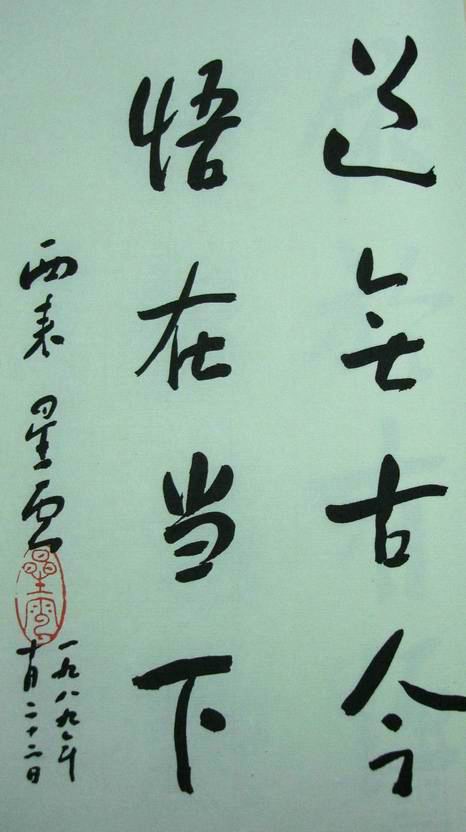 道无古今
悟在当下
西来 星云
星雲
一九八九年
十月二十二日